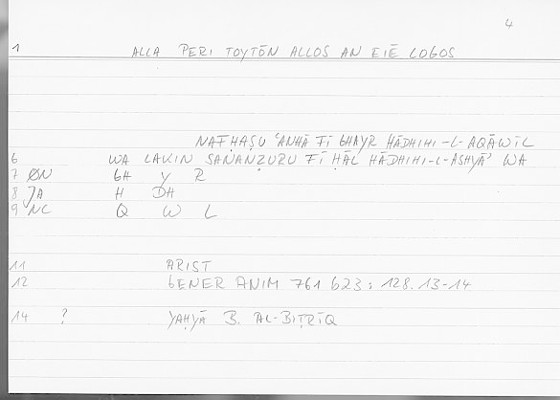 4
1 ALLA PERI TOYTŌN ALLOS AN EIĒ LOGOS
NAFḤAṢU ʿANHĀ FĪ GHAYR HĀDHIHI-L-AQĀWĪL
6 WA LAKIN SANANẒURU FĪ ḤĀL HĀDHIHI-L-ASHYĀʾ WA
7 GH Y R
8 JA H DH
9 NC Q W L
11 ARIST
12 GENER ANIM 761 B23; 128.13-14
14 ? YAḤYĀ B. AL-BIṬRĪQ